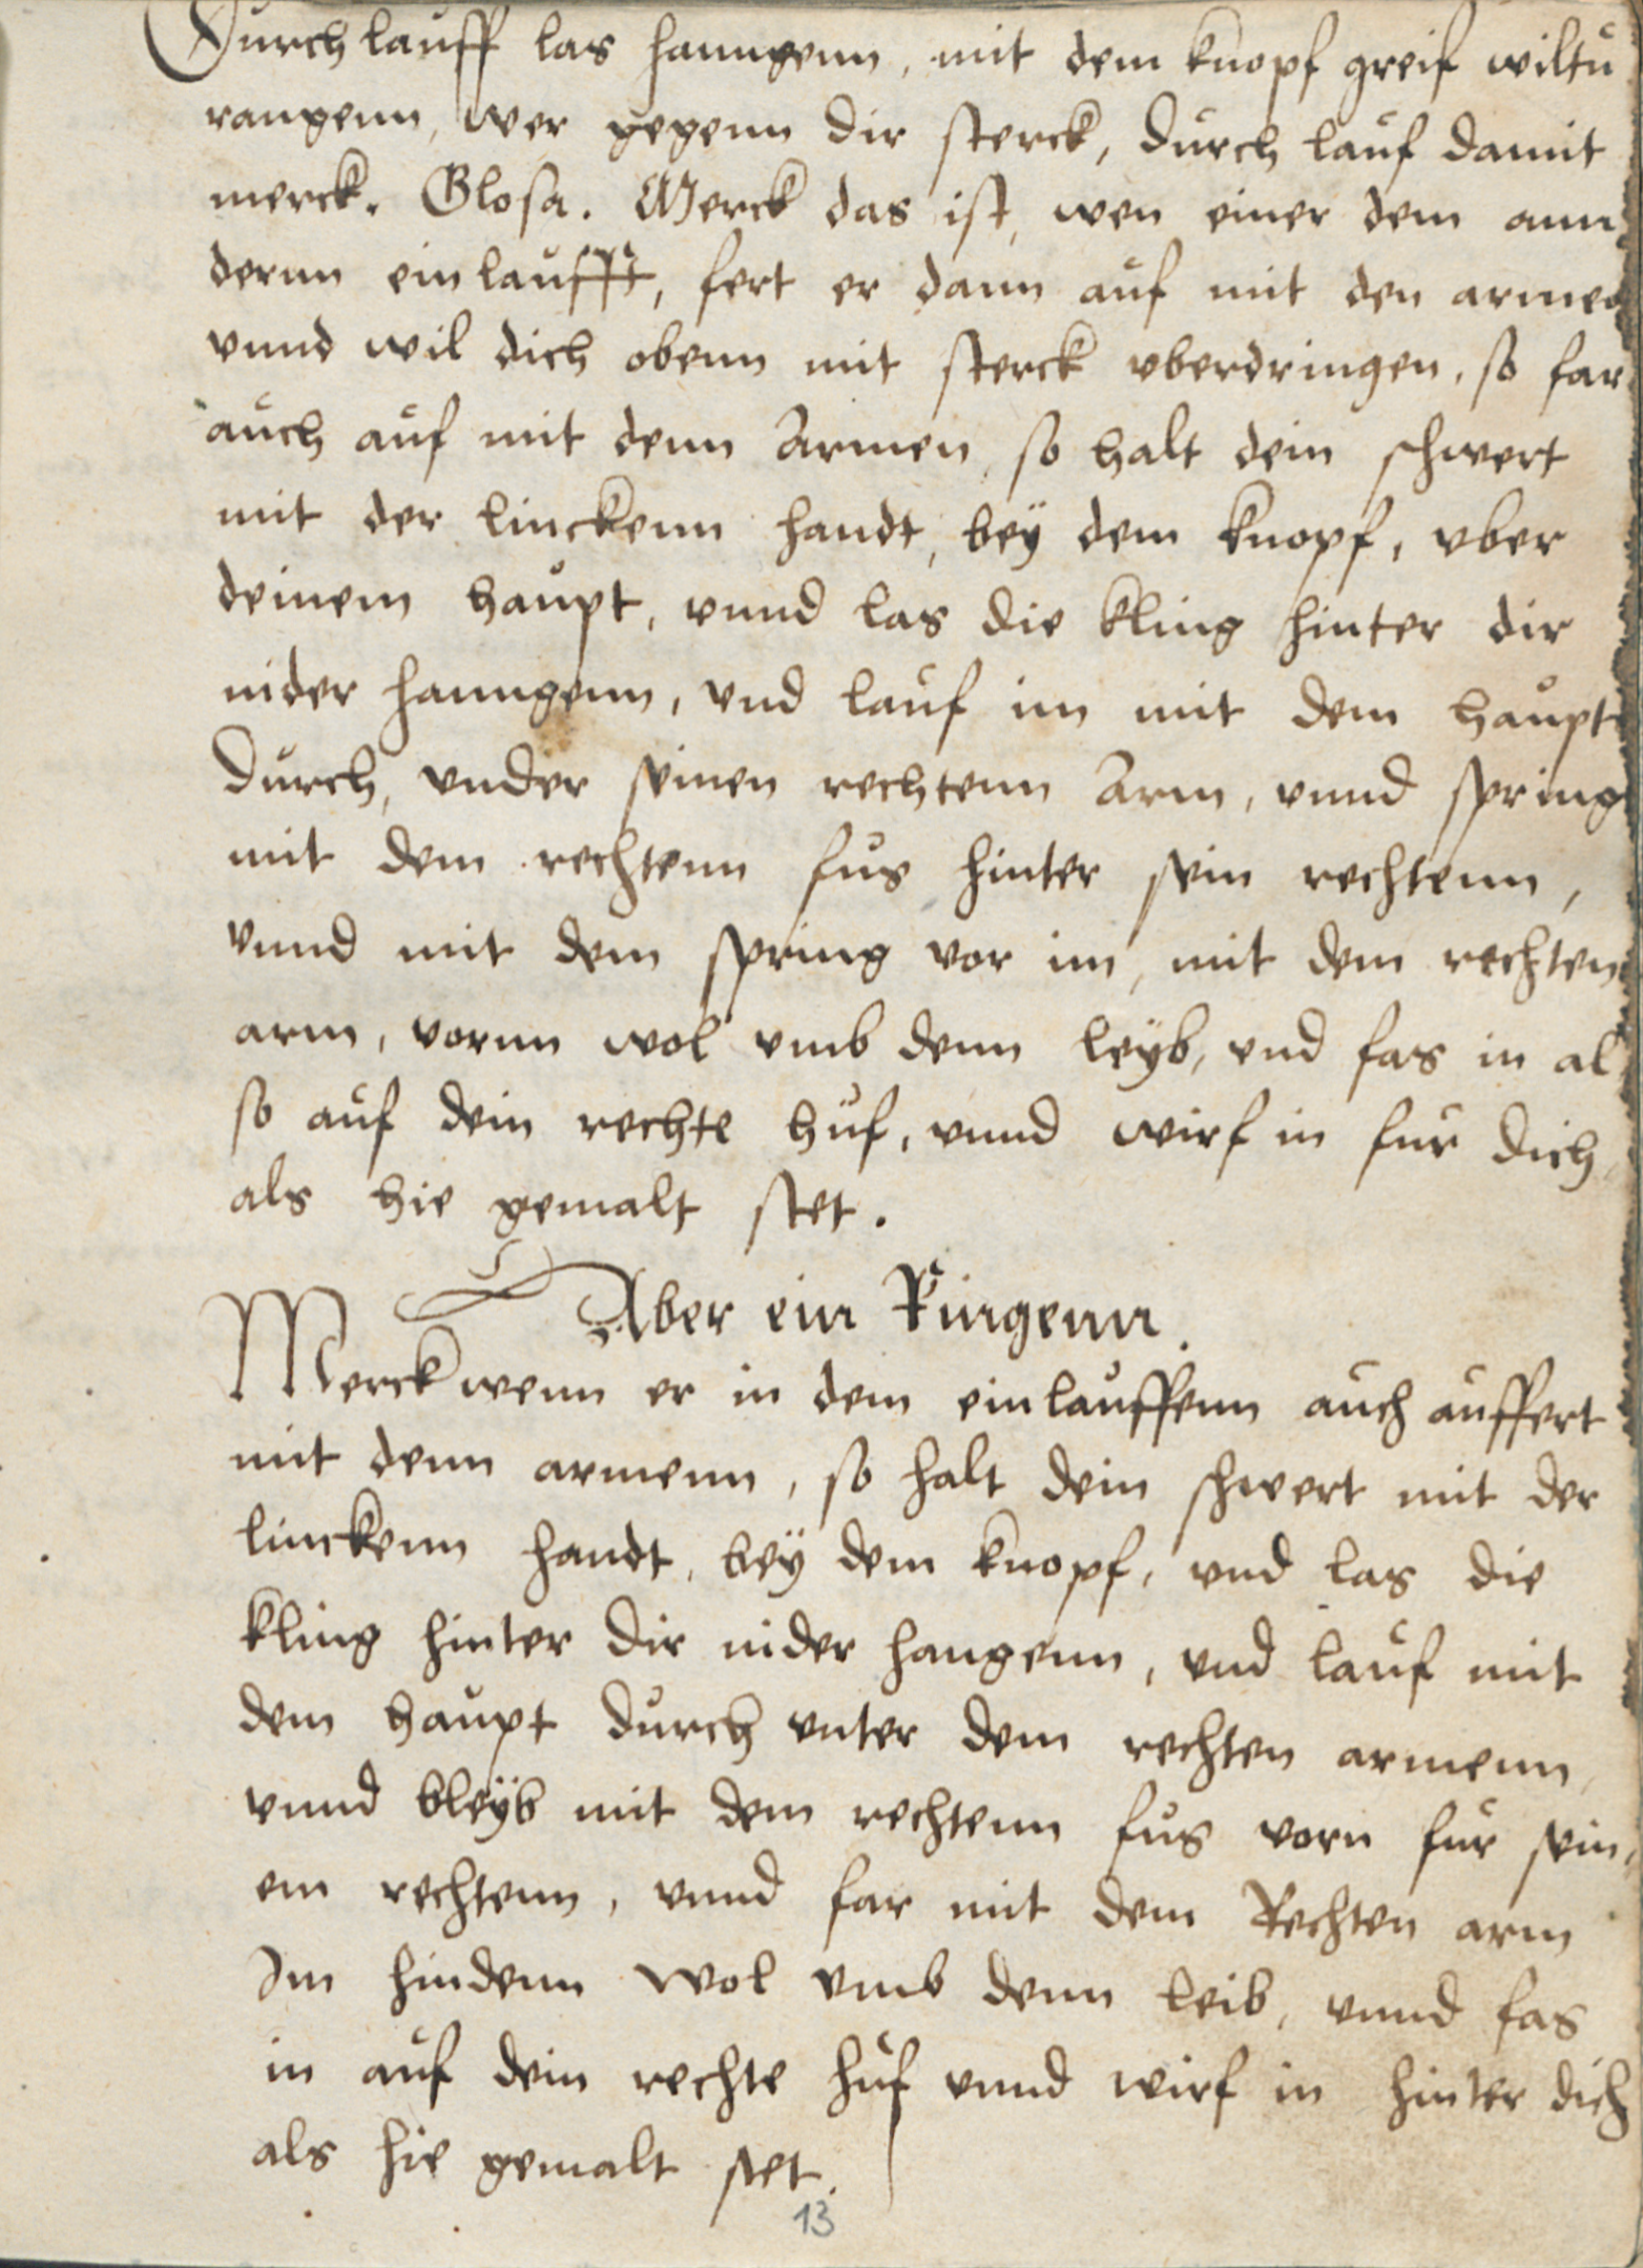 Durch lauff las hanngenn, mit dem knopf greif wiltu
rangenn, wer gegenn dir sterck, durch lauf damit
merck. Glosa. Merck das ist, wen einer dem ann
dernn ein laufft, fert er dann auf mit den armen
vnnd wil dich obenn mit sterck vberdringen, so far
auch auf mit denn Armen, so halt dein schwert
mit der linckenn handt, bey dem knopf, vber
deinem haupt, vnnd las die kling hinter dir
nider hanngenn, vnd lauf im mit dem haupt
durch, vnder seinen rechtenn Arm, vnnd spring
mit dem rechtenn fus hinter sein rechtenn,
vnnd mit dem spring vor im, mit dem rechten
arm, vornn wol vmb denn leyb, vnd fas in al
so auf dein rechte huf, vnnd wirf in fur dich,
als hie gemalt stet.
Aber ein Ringenn.
Merck wenn er in dem einlauffenn auch auffert
mit denn armenn, so halt dein schwert mit der
linckenn handt, bey dem knopf, vnd las die
kling hinter dir nider hangenn, vnd lauf mit
dem haupt durch vnter dem rechten armenn,
vnnd bleyb mit dem rechtenn fus vorn fur sein,
em rechtenn, vnnd far mit dem Rechten arm
Im hindenn wol vmb denn leib, vnnd fas
in auf dein rechte huf vnnd wirf in hinter dich
als hie gemalt stet.
13